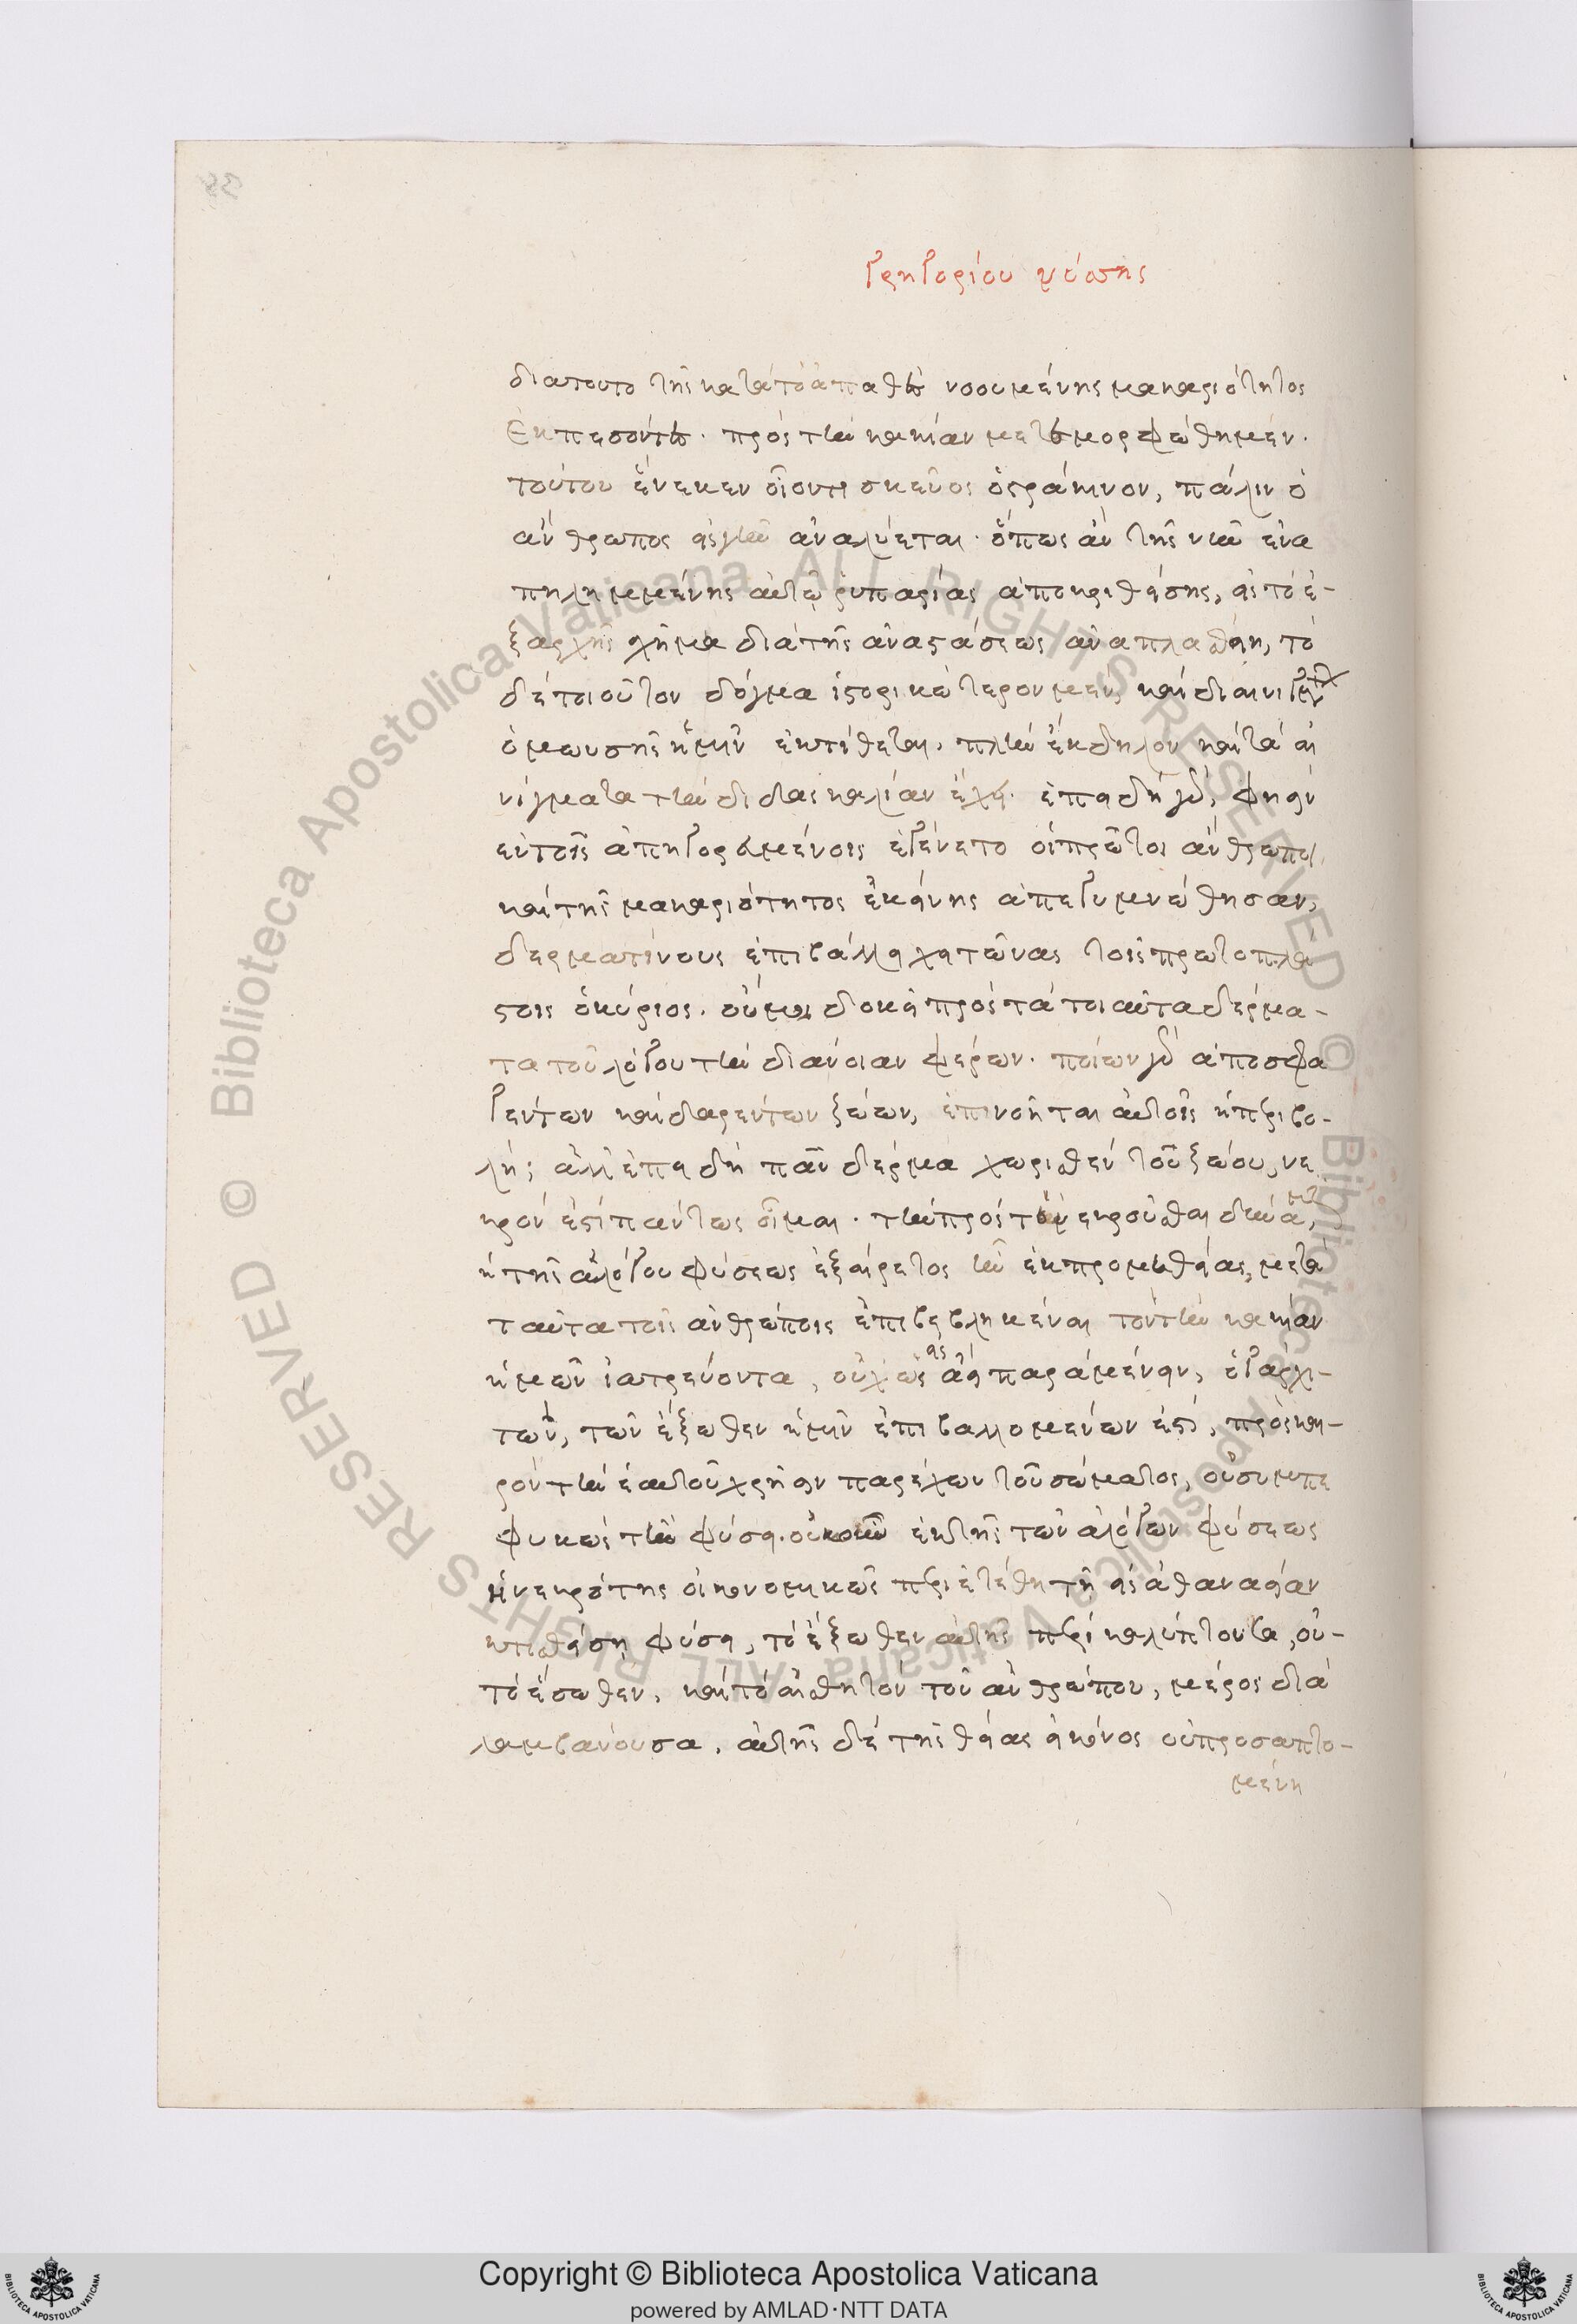 Γρηγορίου νύσσης
διατουτο τῆς κατὰ τὸ ἀπαθὲς νοουμένης μακαριότητος
Ἐκπεσόντες. πρὸς τὴν κακίαν μετεμορφώθημεν.
τούτου ἕνεκεν οἷόντι σκεῦος ὀστράκινον, πάλιν ὁ
ἄνθρωπος εἰς γῆν ἀναλύεται. ὅπως ἂν τῆς νῦν ἐνα
πειλημμένης αὐτῷ ῥυπαρίας ἀποκριθείσης, εἰς τὸ ἐ-
ξαρχῆς σχῆμα διὰ τῆς ἀναστάσεως ἀναπλασθείη, τὸ
δὲ τοιοῦτον δόγμα ἱστορικώτερον μὲν, καὶ δι αἰνιγμάτων
ὁ μωυσῆς ἡμῖν ἐκτίθεται. πλὴν ἔκδηλον καὶ τὰ αἰ
νίγματα τὴν διδασκαλίαν ἔχει. ἐπειδὴ γὰρ, φησὶν
ἐν τοῖς ἀπηγορευμένοις ἐγένετο οἱ πρῶτοι ἄνθρωποι,
καὶ τῆς μακαριότητος ἐκείνης ἀπεγυμνώθησαν,
δερματίνους ἐπιβάλλει χιτῶνας τοῖς πρωτοπλά
στοις ὁ κύριος. οὔ μοι δοκεῖ πρὸς τὰ τοιαῦτα δέρμα-
τα τοῦ λόγου τὴν διάνοιαν φέρων. ποίων γὰρ ἀποσφα
γέντων καὶ δαρέντων ζώων, ἐπινοεῖται αὐτοῖς ἡ περιβο-
λή; ἀλλ' ἐπειδὴ πᾶν δέρμα χωρισθὲν τοῦ ζώου, νε
κρόν ἐστὶ πάντως οἶμαι. τὴν πρὸς τὸ νεκροῦσθαι δύναμιν,
ἡ τῆς ἀλόγου φύσεως ἐξαίρετος ἦν ἐκ προμηθείας, μετὰ
ταῦτα τοῖς ἀνθρώποις ἐπιβεβληκέναι τὸν τὴν κακίαν
ἡμῶν ἰατρεύοντα, οὐχ ὡς εἰς ἀεὶ παραμένειν, ὁ γὰρ χι-
τών, τῶν ἔξωθεν ἡμῖν ἐπιβαλλομένων ἐστί, πρὸς και-
ρὸν τὴν ἑαυτοῦ χρῆσιν παρέχων τοῦ σώματος, οὐ συμπε
φυκὼς τῇ φύσει. οὐκοῦν ἐκ τῆς τῶν ἀλόγων φύσεως
ἡ νεκρότης οἰκονομικῶς περιετέθη τῇ εἰς ἀθανασίαν
κτισθείσῃ φύσει, τὸ ἔξωθεν αὐτῆς περικαλύπτουσα, οὐ-
τὸ ἔσωθεν. καὶ τὸ αἰσθητὸν τοῦ ἀνθρώπου, μέρος δια
λαμβάνουσα. αὐτῆς δὲ τῆς θείας εἰκόνος οὐ προσαπτο-
μένη
Copyright © Biblioteca Apostolica Vaticana
powered by AMLAD·NTT DATA